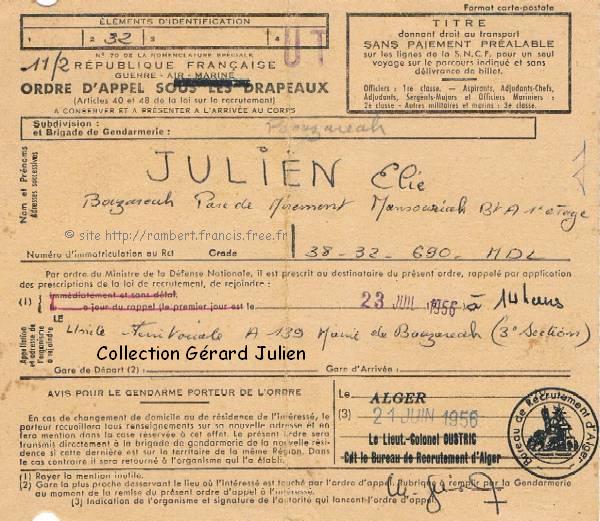 Format carte-postale
ÉLÉMENTS D'IDENTIFICATION
1 2 32 3 4
UT
N° 70 DE LA NOMENCLATURE SPÉCIALE
11/2
RÉPUBLIQUE FRANÇAISE
GUERRE - AIR - MARINE
ORDRE D'APPEL SOUS LES DRAPEAUX
(Articles 40 et 48 de la loi sur le recrutement)
A CONSERVER ET A PRÉSENTER A L'ARRIVÉE AU CORPS
TITRE
donnant droit au transport
SANS PAIEMENT PRÉALABLE
sur les lignes de la S.N.C.F. pour un seul
voyage sur le parcours indiqué et sans
délivrance de billet.
Officiers : 1re classe. — Aspirants, Adjudants-Chefs,
Adjudants, Sergents-Majors et Officiers Mariniers :
2e classe - Autres militaires et marins : 3e classe.
Subdivision :
et Brigade de Gendarmerie : Bouzareah
Nom et Prénoms
Adresses successives
JULIEN Elie
Bouzareah Parc de Miremont Mansouriah Bt A 1er étage
© site http://rambert.francis.free.fr
Numéro d'immatriculation au Rct Grade 38-32-690-MDL
Par ordre du Ministre de la Défense Nationale, il est prescrit au destinataire du présent ordre, rappelé par application
des prescriptions de la loi de recrutement, de rejoindre :
(1) Immédiatement et sans délai.
e jour du rappel (le premier jour est le 23 JUIL 1956 à 14 heures
LE
Appellation
et adresse de
l'organisme
à rejoindre
Unité Territoriale A 139 Mairie de Bouzareah (3e Section)
Collection Gérard Julien
Gare de Départ (2) : Gare d'Arrivée :
AVIS POUR LE GENDARME PORTEUR DE L'ORDRE
En cas de changement de domicile ou de résidence de l'intéressé, le
porteur recueillera tous renseignements sur sa nouvelle adresse et en
fera mention dans la case réservée à cet effet. Le présent ordre sera
transmis directement à la brigade de gendarmerie de la nouvelle rési-
dence si cette dernière est sur le territoire de la même Région. Dans
le cas contraire il sera retourné à l'organisme qui l'a établi.
Le ALGER
(3) 21 JUIN 1956
Le Lieut.-Colonel OUSTRIC
Cdt le Bureau de Recrutement d'Alger
Bureau de Recrutement d'Alger
(1) Rayer la mention inutile.
(2) Gare la plus proche desservant le lieu où l'intéressé est touché par l'ordre d'appel. Rubrique à remplir par la Gendarmerie
au moment de la remise du présent ordre d'appel à l'intéressé.
(3) Indication de l'organisme et signature de l'autorité qui lancent l'ordre d'appel.